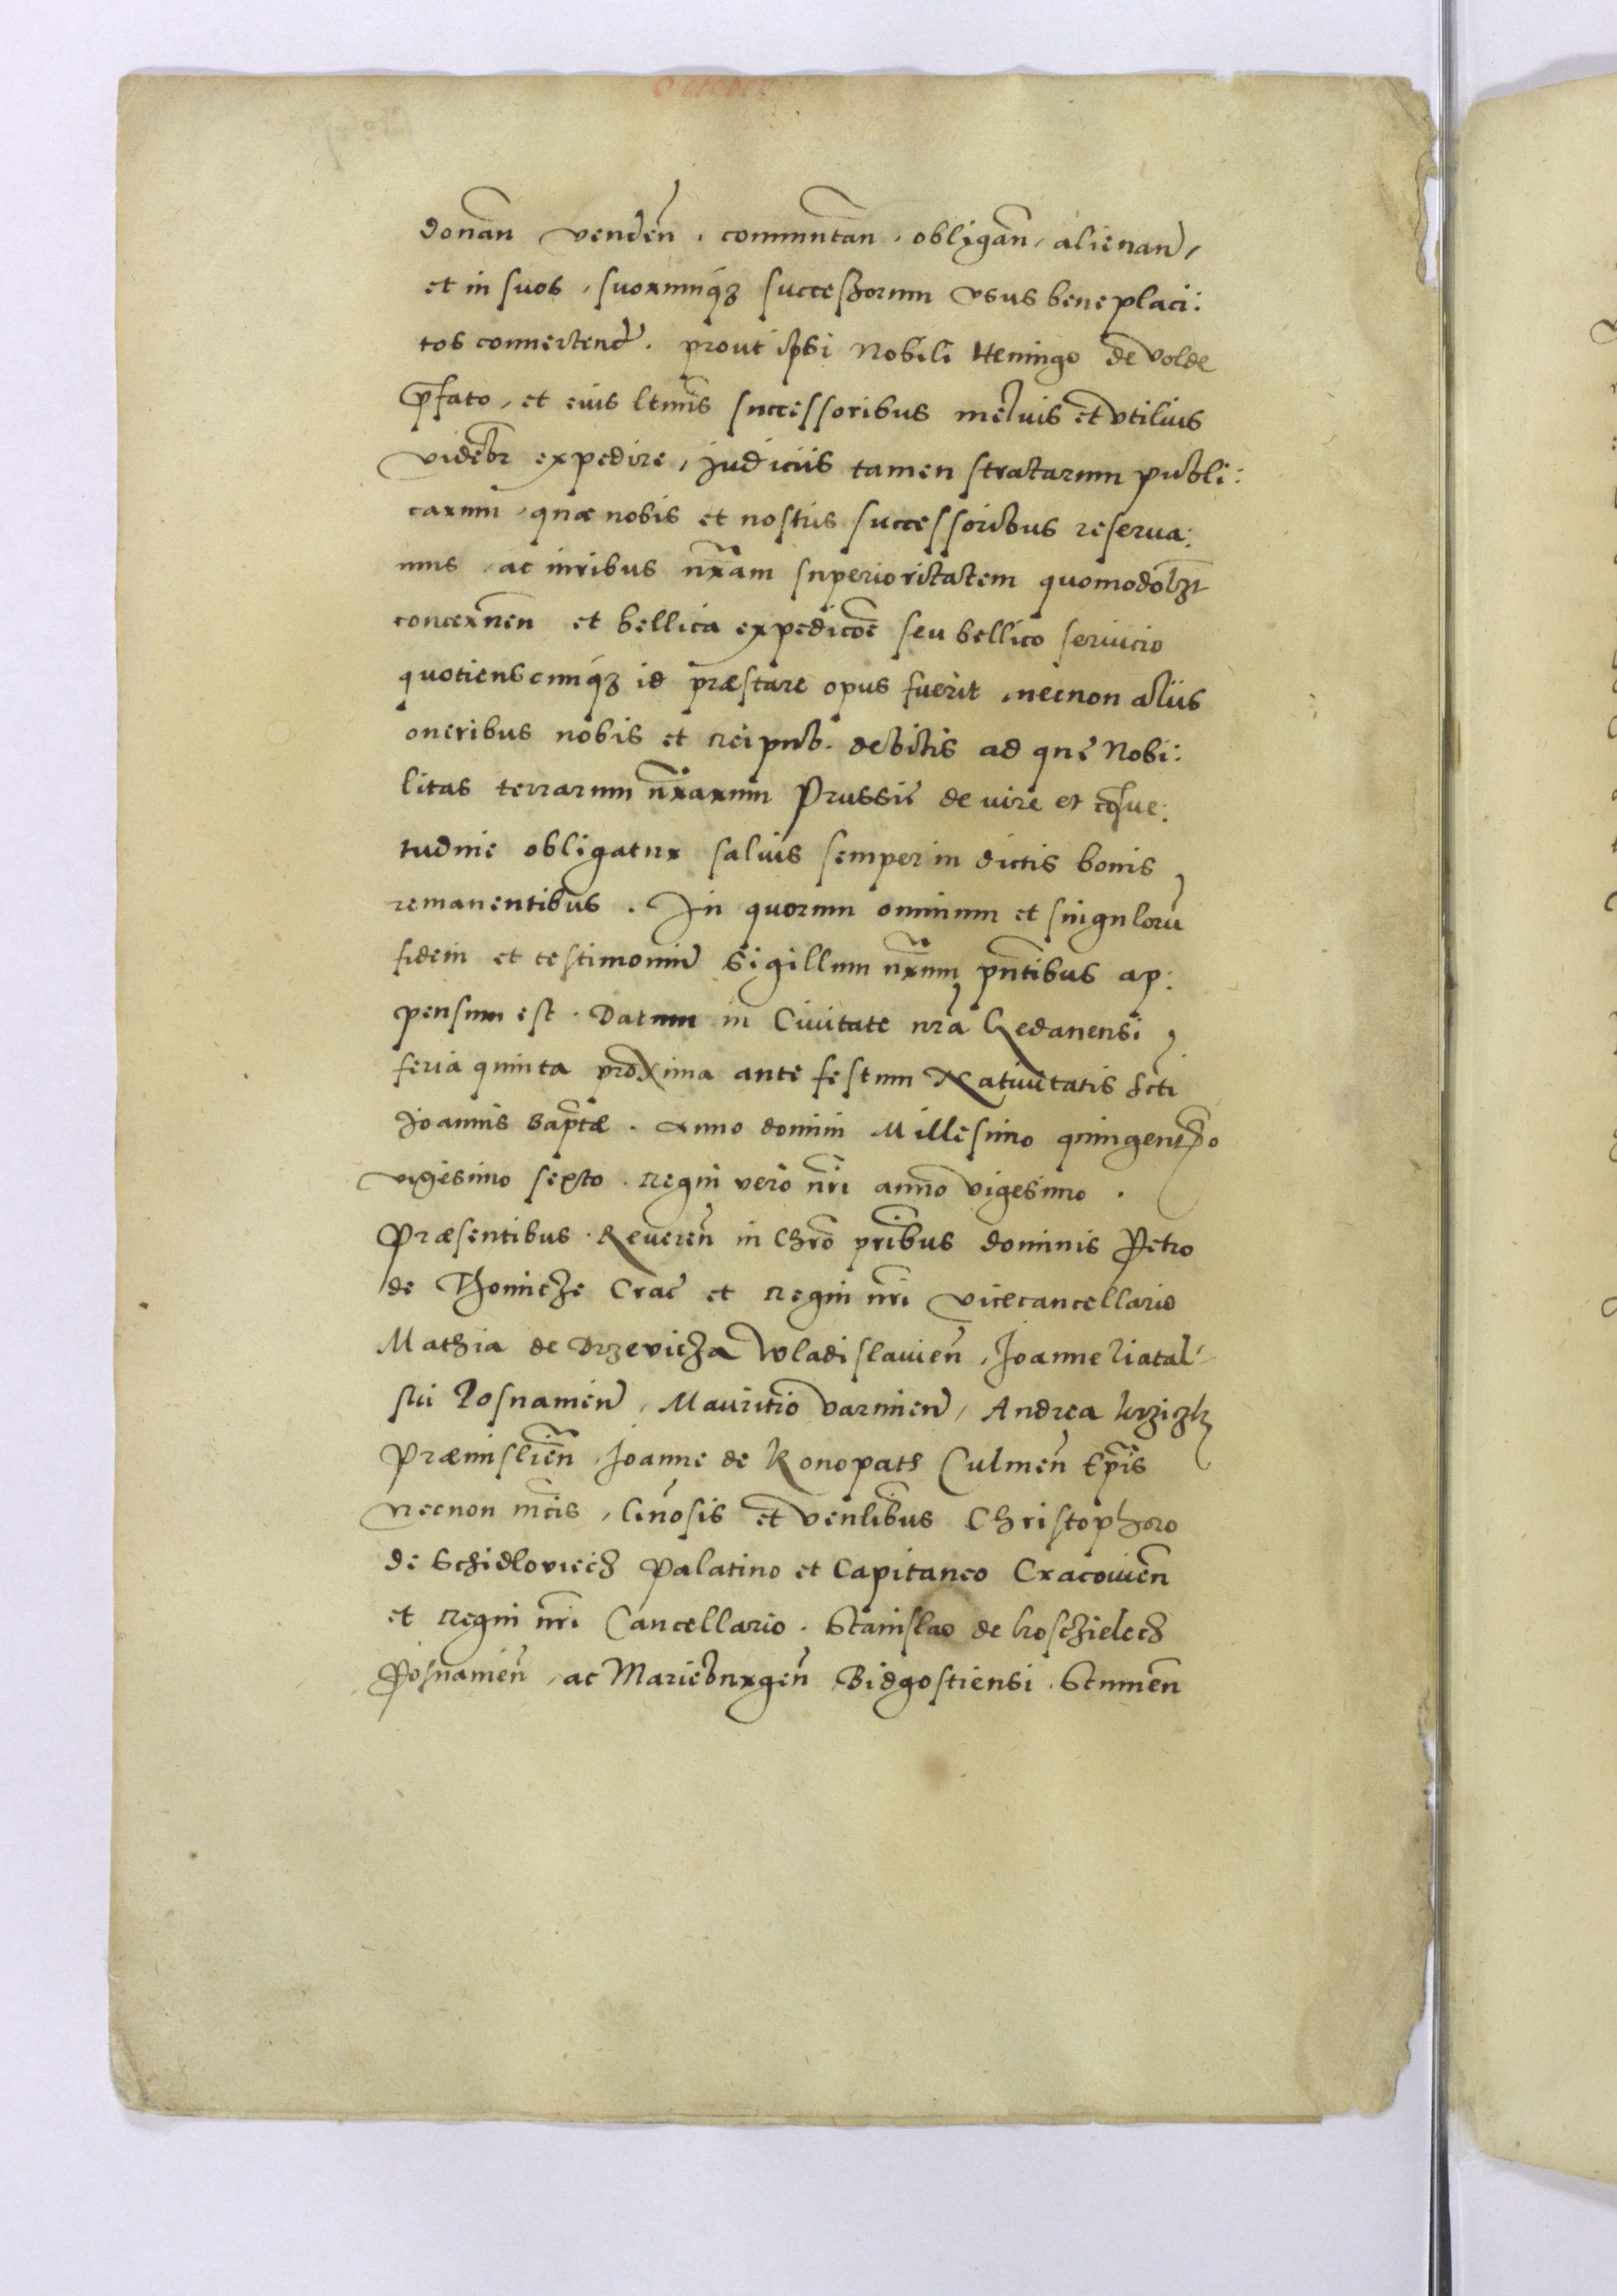 October
donan̄ venden̄. commutan̄. obligan̄, alienan̄,
et in suos, suorumq́ꝫ successorum vsus beneplaci:
tos conuertend̄. prout ipsi Nobili Heningo de Volde
p̄fato, et eius ltimis successoribus melius et vtilius
videbr̄ expedire, Judiciis tamen stratarum publi:
carum, quæ nobis et nostris successoribus reserua:
mus, ac iuribus nr̄am superioritatem quomodolꝫt
concernen̄ et bellica expedicōe seu bellico seruicio
quotienscunq́ꝫ id præstare opus fuerit, necnon aliis
oneribus nobis et Reipub. debitis ad quę Nobi:
litas terrarum nr̄arum Prussię de iure et cōsue:
tudine obligatur saluis semper in dictis bonis
remanentibus. In quorum omnium et singulorū
fidem et testimoniū Sigillum nr̄um pn̄tibus ap:
pensum est. Datum in Ciuitate nr̄a Gedanensi,
feria quinta proxima ante festum Natiuitatis Scti
Joannis Bap̄tæ. Anno domini Millesimo quingentesimo
vigesimo sexto. Regni vero nr̄i anno vigesimo.
Præsentibus Reueren̄ in Chrō pr̄ibus dominis Petro
de Thomicze Crac̄ et Regni nr̄i vicecancellario
Mathia de Drzevicza Wladislauien̄, Joanne Latal
ski Posnanien̄, Mauritio Varmien̄, Andrea Krzizk
Præmislien̄, Joanne de Konopath Culmen̄ Ep̄is
Necnon mcīs, Gn̄osis et Venlibus Christophoro
de Schidloviecz Palatino et Capitaneo Cracouien̄
et Regni nr̄i Cancellario. Stanislao de Koschielecz
Posnanien̄, ac Marieburgen̄ Bidgostiensi. Stumen̄